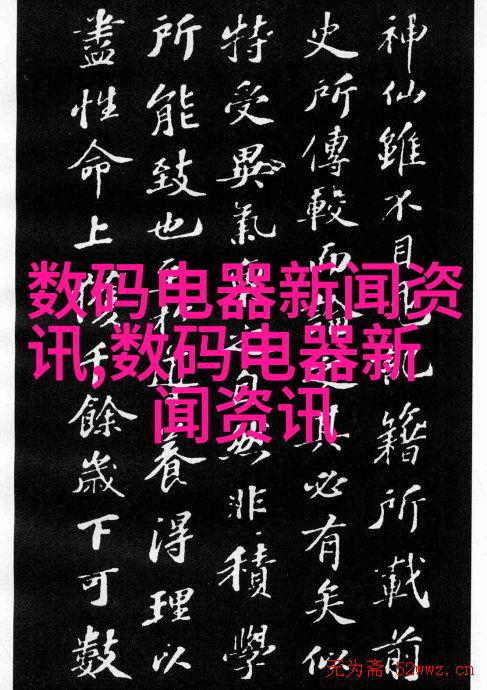 神仙雖不目見記籍所載前
史所傳較而論之其必有矣似
特受異氣稟之自然非積學
所能致也至於導養得理以
盡性命上獲千餘歲下可數
数码电器新闻资
讯,数码电器新
闻资讯
无为斋 52wwz.cn